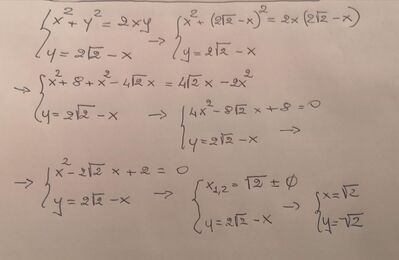 {x² + y² = 2xy → {x² + (2√2 - x)² = 2x (2√2 - x)
{y = 2√2 - x {y = 2√2 - x
→ {x² + 8 + x² - 4√2 x = 4√2 x - 2x²
{y = 2√2 - x → {4x² - 8√2 x + 8 = 0 →
→ {x² - 2√2 x + 2 = 0 → {x₁,₂ = √2 ± 0 → {x = √2
{y = 2√2 - x {y = 2√2 - x {y = √2